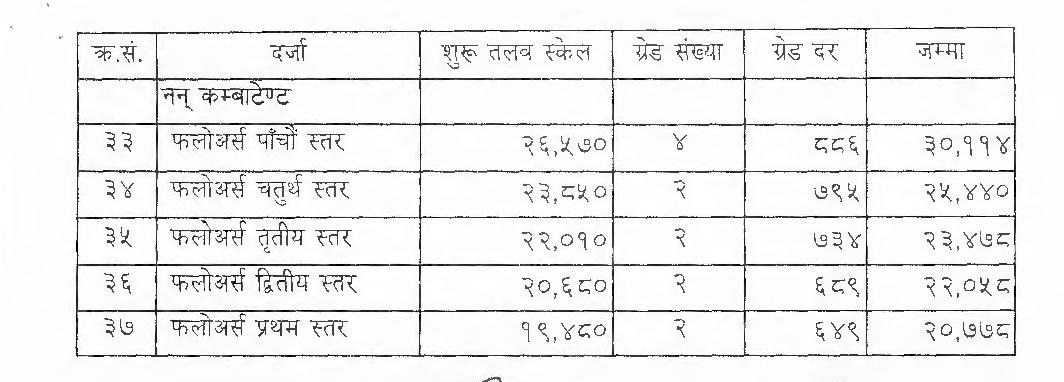 क्र.सं. दर्जा शुरू तलव स्केल ग्रेड संख्या ग्रेड दर जम्मा
नन् कम्बाटेण्ट
३३ फलोअर्स पाँचौं स्तर २६,५७० ४ ८८६ ३०,११४
३४ फलोअर्स चतुर्थ स्तर २३,८५० २ ७९५ २५,४४०
३५ फलोअर्स तृतीय स्तर २२,०१० २ ७३४ २३,४७८
३६ फलोअर्स द्वितीय स्तर २०,६८० २ ६८९ २२,०५८
३७ फलोअर्स प्रथम स्तर १९,४८० २ ६४९ २०,७७८